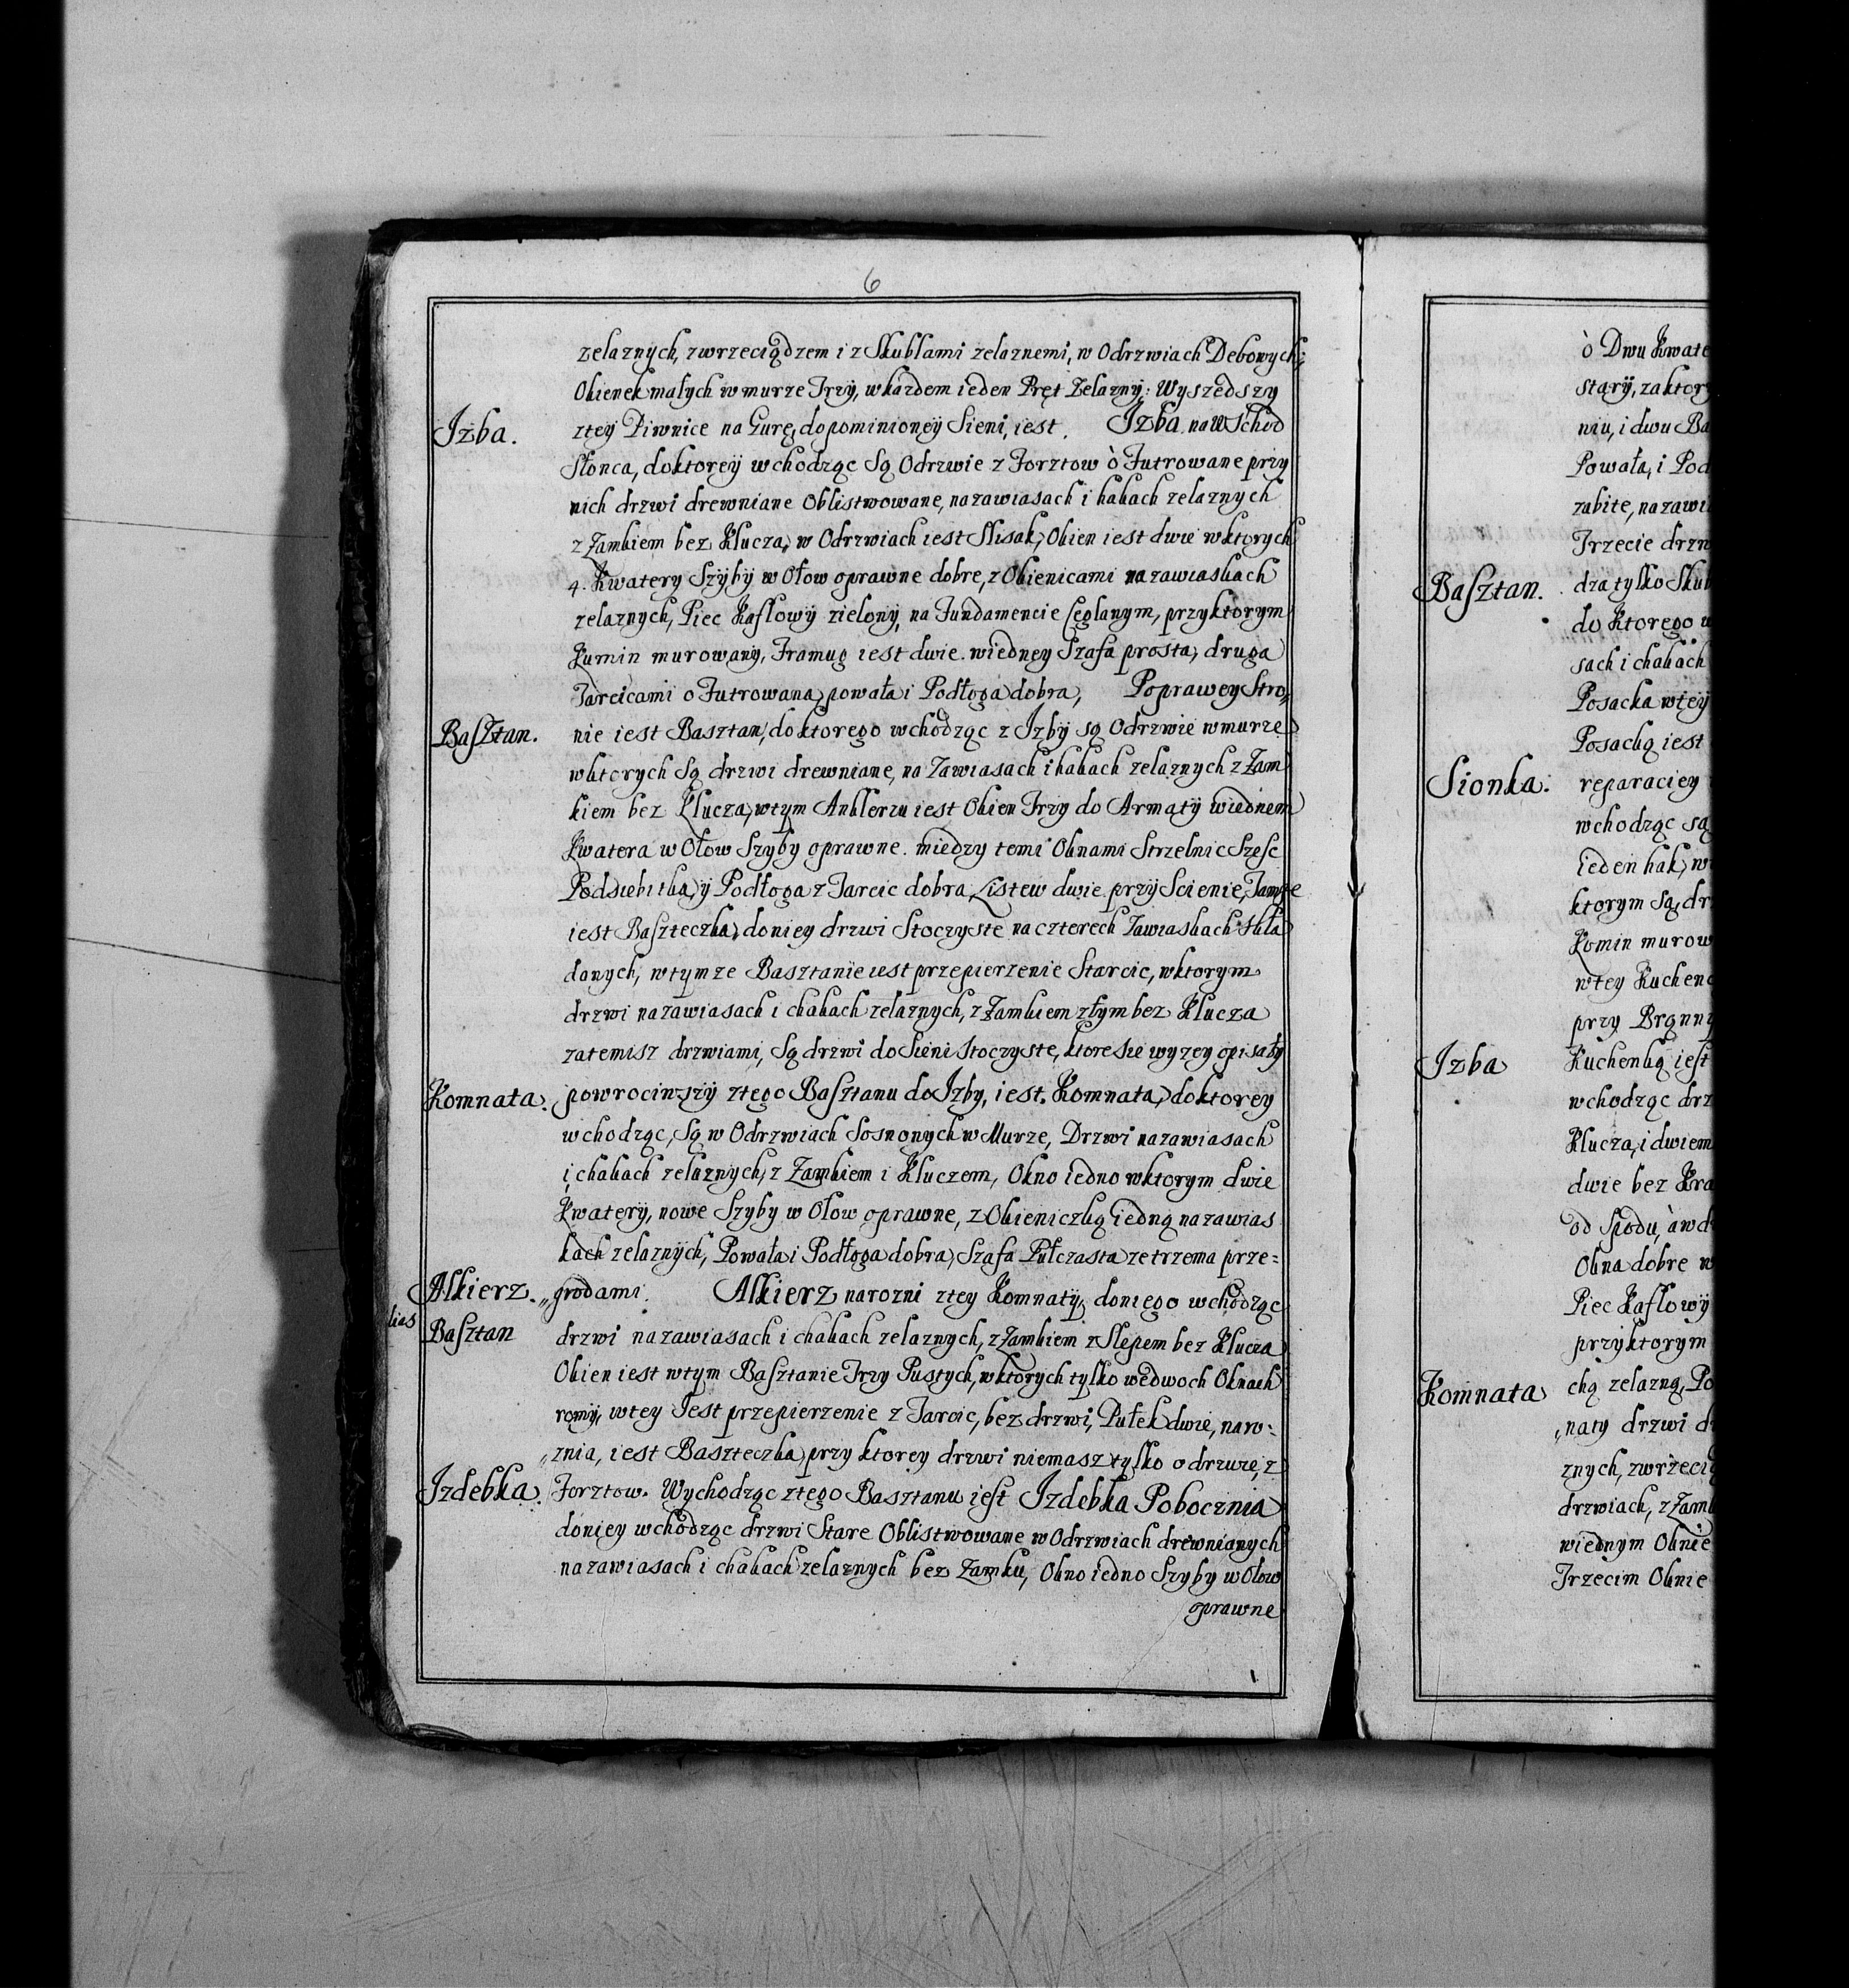 6
zelaznych, zwrzeciądzem i z Skublami zelaznemi, w Odrzwiach Debowych;
Okienek małych w murze Trzy, w kazdem ieden Pręt Zelazny: Wyszedszy
Izba.
ztey Piwnice na Gurę, do pominioney Sieni, iest. Izba na WSchod
Słonca, doktorey wchodząc Są Odrzwie z Forztow ò Futrowane przy
nich drzwi drewniane Oblistwowane, na zawiasach i hakach zelaznych
z Zamkiem bez Klucza, w Odrzwiach iest Slisak, Okien iest dwie wktorych
4. Kwatery Szyby w Ołow oprawne dobre, z Okienicami na zawiaskach
zelaznych, Piec Kaflowy zielony, na Fundamencie Ceglanym, przyktorym
Kumin murowany, Framug iest dwie. wiedney Szafa prosta, druga
Tarcicami o Futrowana, powała i Podłoga dobra, Poprawey Stro,
Basztan.
nie iest Basztan, do ktorego wchodząc z Izby są Odrzwie wmurze
wktorych Są drzwi drewniane, na Zawiasach i hakach zelaznych z Zam
kiem bez Klucza, wtym Anklerzu iest Okien Trzy do Armaty wiednem
Kwatera w Ołow Szyby oprawne. miedzy temi Oknami Strzelnic Szesc
Podsiebitka, y Podłoga z Tarcic dobra, Listew dwie przy Scienie, Tamze
iest Baszteczka, doniey drzwi Stoczyste na czterech Zawiaskach Skła
danych, wtymze Basztanie iest przepierzenie Starcic, wktorym
drzwi na zawiasach i chakach zelaznych, z Zamkiem złym bez Klucza
zatemisz drzwiami, Są drzwi do Sieni Stoczyste, ktore sie wyzey opisały
Komnata.
powrociwszy ztego Basztanu do Izby, iest. Komnata, doktorey
wchodząc, Są w Odrzwiach Sosnonych w Murze, Drzwi na zawiasach
i chakach zelaznych, z Zamkiem i Kluczem, Okno iedno wktorym dwie
Kwatery, nowe Szyby w Ołow oprawne, z Okieniczką iedną na zawias
kach zelaznych, Powała i Podłoga dobra, Szafa Pułczasta ze trzema prze=
Alkierz.
„grodami. Alkierz narozni ztey Komnaty, doniego wchodząc
lias
Basztan
drzwi na zawiasach i chakach zelaznych, z Zamkiem z Slepem bez Klucza
Okien iest wtym Basztanie Trzy Pustych, wktorych tylko wedwoch Oknach
romy, wtey Iest przepierzenie z Tarcic, bez drzwi, Pułek dwie, naro:
„znia, iest Baszteczka, przy ktorey drzwi niemasz tylko odrzwie, z
Izdebka.
Forztow. Wychodząc ztego Basztanu iest Izdebka Pobocznia
doniey wchodząc drzwi Stare Oblistwowane w Odrzwiach drewnianych
na zawiasach i chakach zelaznych bez Zamku, Okno iedno Szyby w Ołow
oprawne
ò Dwu Kwate
stary, za ktory
niu, i dwu Ba
Powała, i Pod
zabite, na zawi
Trzecie drzw
Basztan.
dza tylko Skub
do Ktorego w
sach i chakach
Posacka wtey
Posacką iest
Sionka.
reparaciey
wchodząc są
ieden hak, w
ktorym Są, dr
Komin murow
wtey Kuchenc
przy Brąnny
Izba
Kuchenką iest
wchodząc drz
Klucza, i dwiem
dwie bez Kra
od Spodu, àwd
Okna dobre w
Piec Kaflowy
przyktorym
Komnata
chą zelazną, Po
„naty drzwi d
znych, zwrzeci
drzwiach, z Zam
wiednym Oknie
Trzecim Oknie